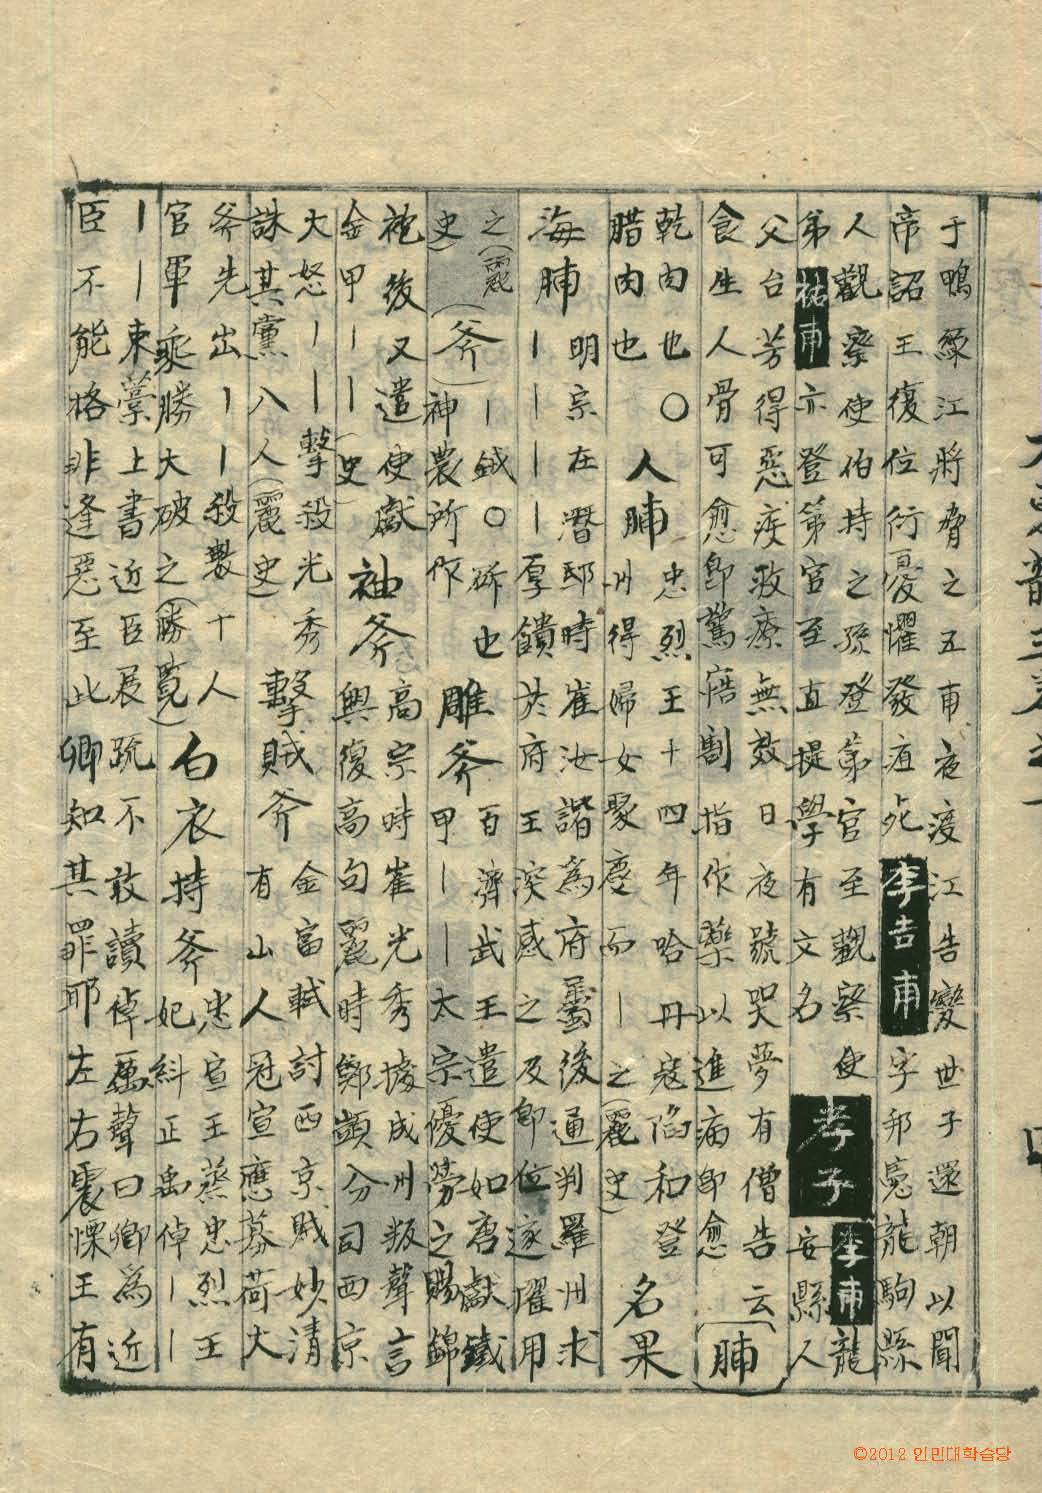 于鴨綠江將脅之五甫夜渡江告變世子還朝以聞
帝詔王復位衍憂懼發疽死 李告甫 字邦寃龍駒縣
人觀察使伯持之孫登第官至觀察使
弟祐甫亦登第官至直提學有文名
孝子 李甫 龍
安縣人
父台芳得惡疾救療無效日夜號哭夢有僧告云
食生人骨可愈卽驚寤割指作藥以進病卽愈
脯
乾肉也○
腊肉也
人脯
忠烈王十四年哈丹寇陷和登
州得婦女聚麀而丨之(麗史)
名果
海脯丨丨丨丨
明宗在潛邸時崔汝諧爲府
後通判羅州求
厚饋於府王深感之及卽位遂擢用
之(麗
史)
(斧)
丨鉞○斫也
神農所作
雕斧
百濟武王遣使如唐獻鐵
甲丨丨太宗優勞之賜錦
袍後又遣使獻
金甲丨丨(史)
袖斧
高宗時崔光秀據成州叛聲言
興復高句麗時鄭顗分司西京
大怒丨丨擊殺光秀
誅其黨八人(麗史)
擊賊斧
金富軾討西京賊妙清
有山人冠宣應募荷大
斧先出丨丨殺製十人
官軍乘勝大破之(勝覽)
白衣持斧
忠宣王蒸忠烈王
妃糾正禹倬丨丨
丨丨束藁上書近臣展疏不敢讀倬厲聲曰卿爲近
臣不能格非逢惡至此卿知其罪耶左右震慄王有
©2012 인민대학습당